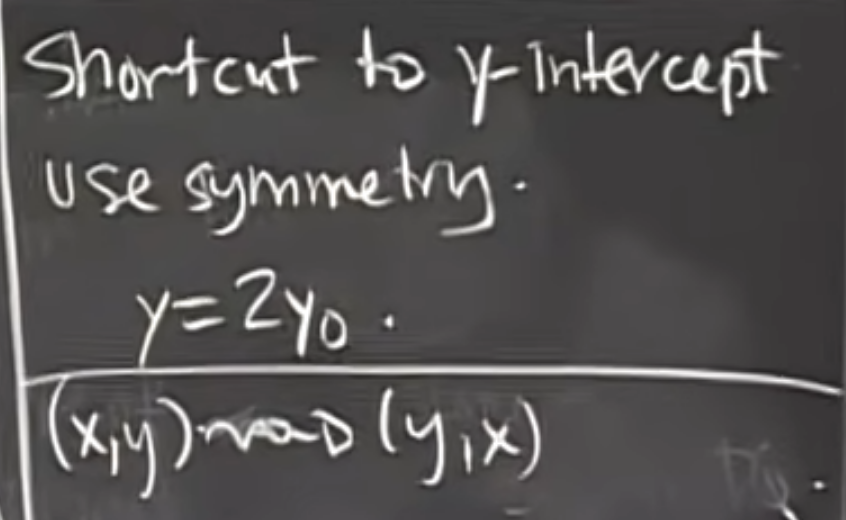 Shortcut to y-intercept
use symmetry.
y=2y₀.
(x,y)⇝(y,x)